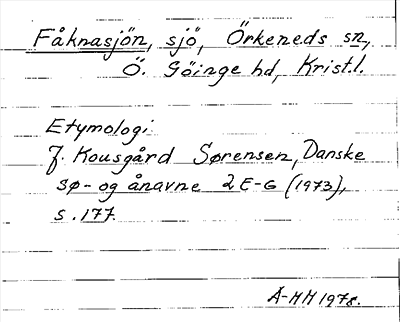 Fåknasjön, sjö, Örkeneds sn,
Ö. Göinge hd, Krist.l.
Etymologi:
J. Kousgård Sørensen, Danske
sø- og ånavne 2 E-G (1973),
s. 177.
Å-HH 1978.